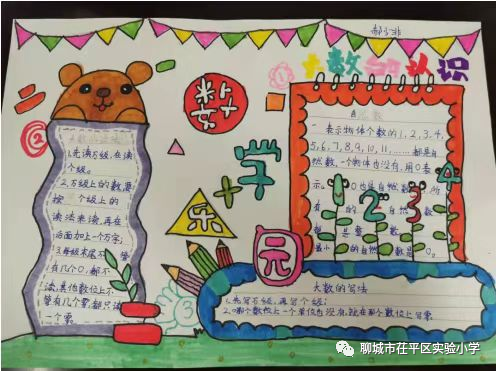 郝梦非
大数的认识
数
学
乐
园
1.先读万级,在读
个级。
2.万级上的数,要
按 个级上的
读法来读,再在
后面加上一个万字;
3.每级末尾不管
有几个0,都不
读,其他数位上不
管有几个零,都只读
一个零。
自然数
一 表示物体个数的1,2,3,4,
5,6,7,8,9,10,11,……都是自
然数,一个物体也没有,用0表
示。0也是自然数,所
有的自然数
都是整数,
最小的自然数是0。
1 2 3 4
大数的写法
1.先写万级,再写个级;
2.哪个数位上一个单位也没有,就在那个数位上写零
聊城市茌平区实验小学